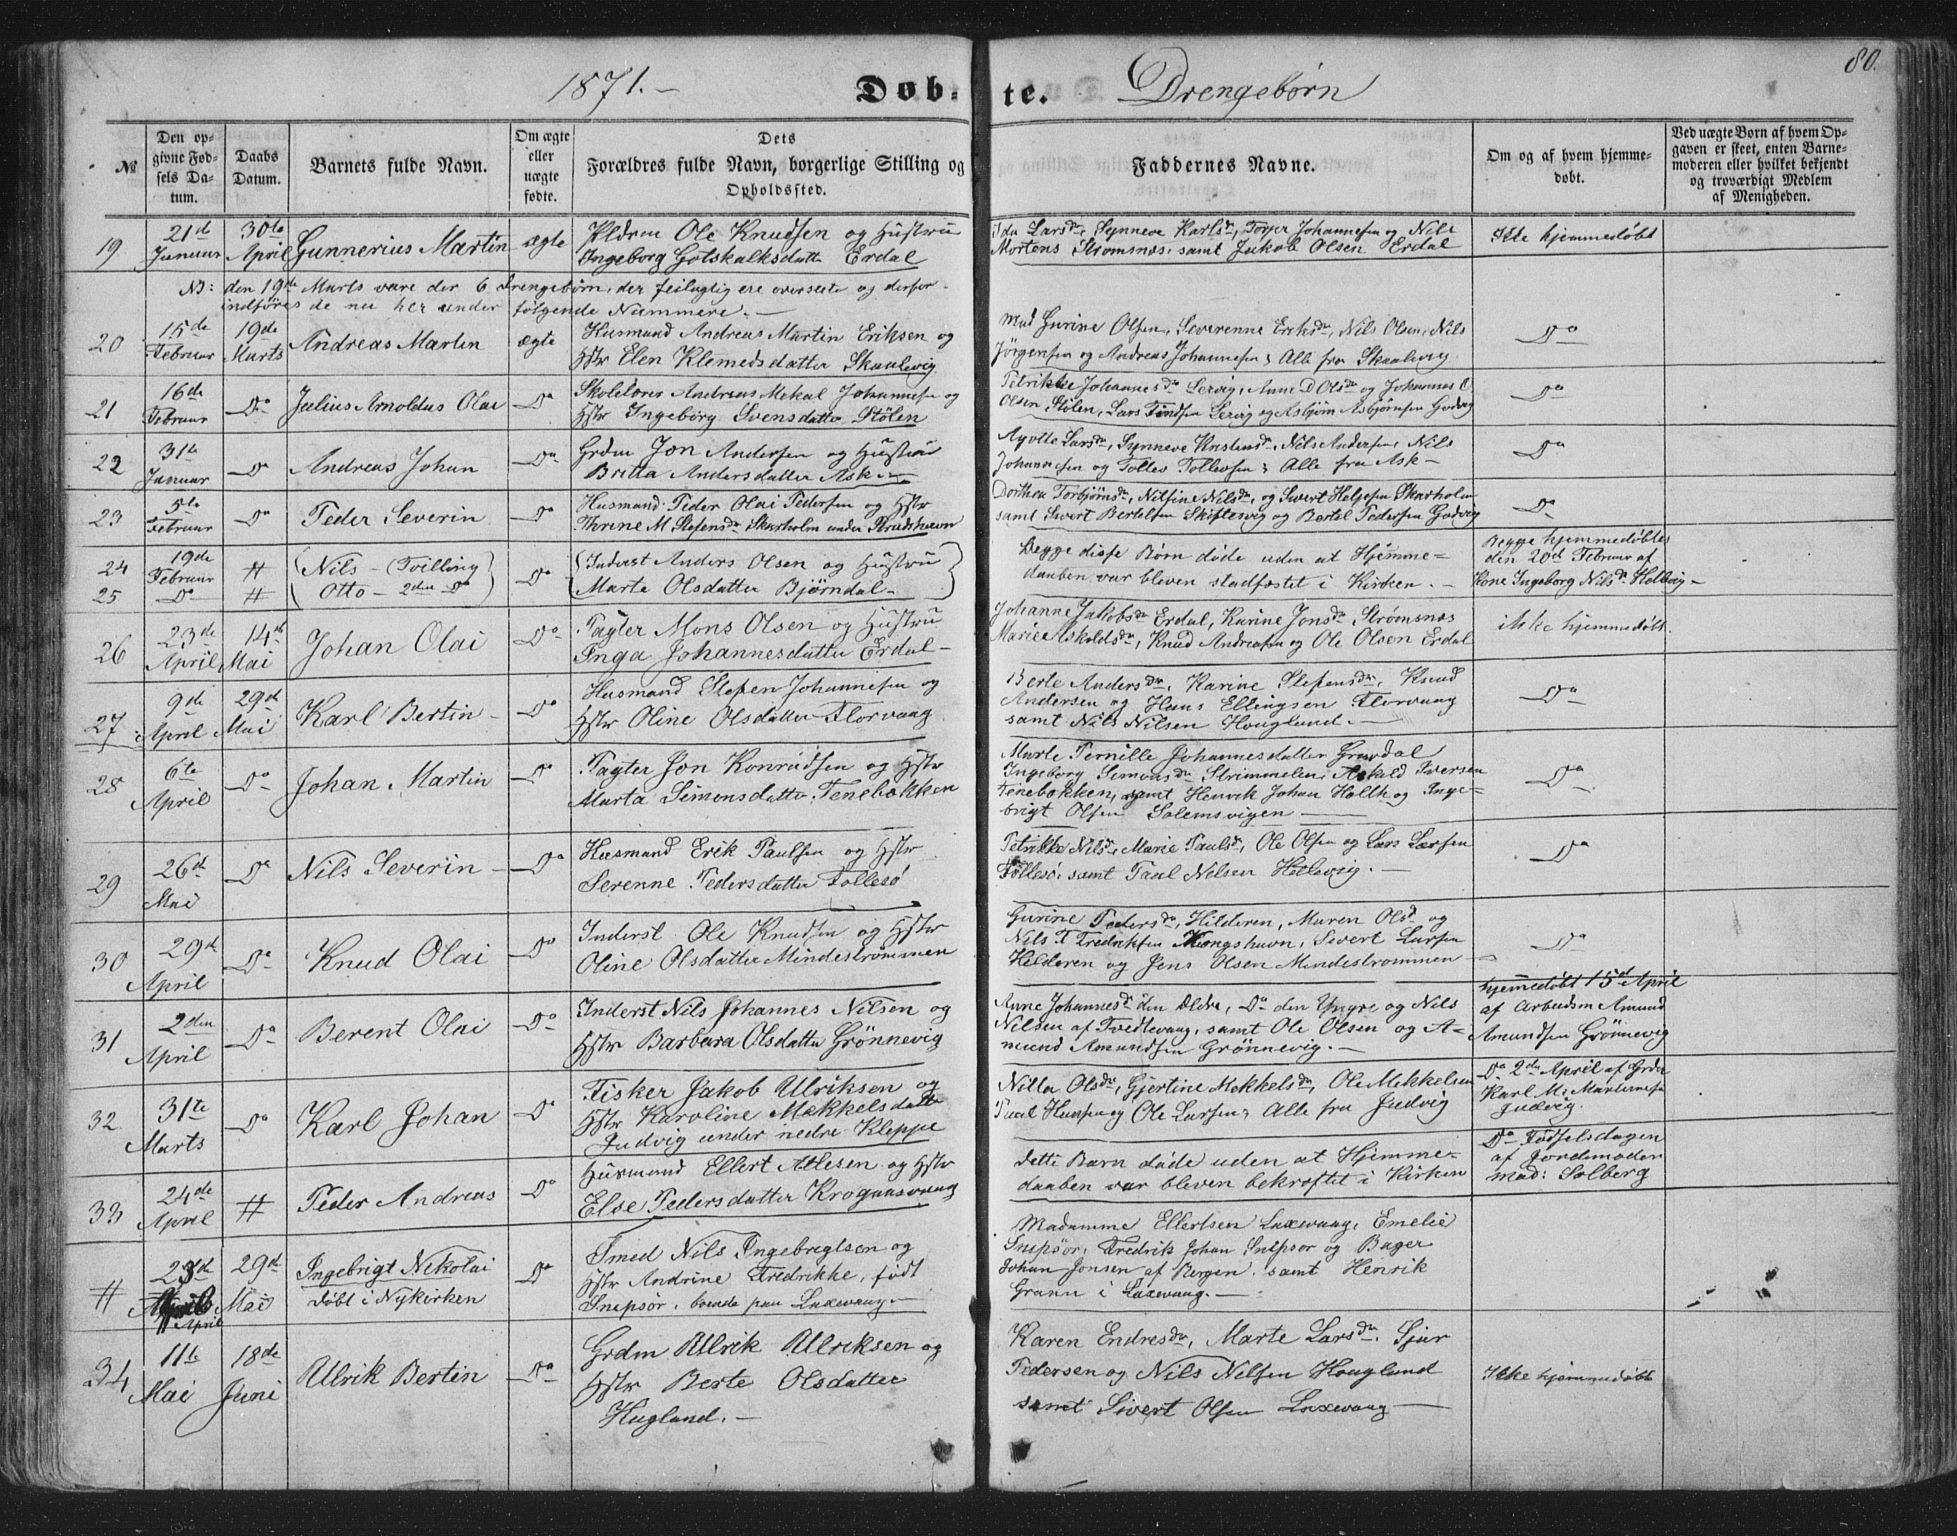 80.
1871.— Døb- te. Drengebørn
№
Den op-
givne Fød-
sels Da-
tum.
Daabs
Datum.
Barnets fulde Navn.
Om ægte
eller
uægte
fødte.
Dets
Forældres fulde Navn, borgerlige Stilling og
Opholdssted.
Faddernes Navne.
Om og af hvem hjemme-
døbt.
Ved uægte Børn af hvem Op-
gaven er skeet, enten Barne-
moderen eller hvilket bekjendt
og troværdigt Medlem
af Menigheden.
19
21de
Januar
30te
April
Gunnerius Martin
ægte
Ole Knudsen og Hustru
Ingeborg Gotskalksdatter Erdal
Ida Larsdr, Synneve Karlsdr, Johannesen og Nils
Mortens Strømsnæs, samt Jakob Olsen Erdal
Ikke hjemmedøbt
NB: den 19de Marts vare der 6 Drengebørn, der feilagtig ere overseete og derfor
indføres de nu her under følgende Nummere.—
20
15de
Februar
19de
Marts
Andreas Martin
ægte
Husmand Andreas Martin Eriksen og
Hstr Elen Klemedsdatter Skaalevig
Mad Gurine Olsen, Severenne Eriksdr, Nils Olsen, Nils
Jörgensen og Andreas Johannesen; Alle fra Skaalevig
Do
21
16de
Februar
Do
Julius Arnoldus Olai
Do
Skolelærer Andreas Mekal Johannesen og
Hstr Ingebörg Svensdatter Stölen
Petrikke Johannesdr Lervig, Anne D Olsdr og Johannes O
Olsen Stölen, Lars Lervig og Asbjørn Asbjørnsen Godvig
Do
22
31te
Januar
Do
Andreas Johan
Do
Grdm Jon Andersen og Hustru
Britta Andersdatter Ask—
Larsdr, Synneve Knudsdr, Nils Andersen, Nils
Johannesen og Tollev Tollevsen; Alle fra Ask—
Do
23
5te
Februar
Do
Peder Severin
Do
Husmand Peder Olai Pedersen og Hstr
Thrine M Stefensdr Skarholm under Strudshavn
Dorthea Torbjörnsdr, Nilsine Nilsdr, og Sivert Helgesen Skarholm
samt Sivert Bertelsen Skiftesvig og Bertel Pedersen Godvig
Do
24
19de
Februar
#
Nils — (Tvilling)
25
Do
#
Otto — 2den Do
Do
Inderst Anders Olsen og Hustru
Marta Olsdatter Bjørndal—
Begge disse Børn døde uden at Hjemme-
daaben var bleven stadfæstet i Kirken.—
Begge hjemmedøbte
den 20de Februar af
Kone Ingeborg Nilsdr Hellevig—
26
23de
April
14de
Mai
Johan Olai
Do
Pagter Mons Olsen og Hustru
Inga Johannesdatter Erdal—
Johanne Jakobsdr Erdal, Karine Jonsdr Strømsnæs
Marie Askeldsdr, Knud Andreasen og Ole Olsen Erdal
ikke hjemmedøbt.
27
9de
April
29de
Mai
Karl Bertin—
Do
Husmand Stefen Johannesen og
Hstr Oline Olsdatter Florvaag
Berte Andersdr, Karine Stefensdr, Knud
Andersen og Hans Ellingsen Florvaag
samt Nils Nilsen Hougland.—
Do
28
6te
April
Do
Johan Martin
Do
Pagter Jon Konradsen og Hstr
Marta Simonsdatter Tenebækken
Marte Pernille Johannesdatter
Ingeborg Simonsdr Strimmelen, Askeld Iversen
Tenebækken, samt Henrik Johan Holth og Inge-
brigt Olsen Solemsvigen—
Do
29
26de
Mai
Do
Nils Severin—
Do
Husmand Erik Paulsen og Hstr
Serenne Pedersdatter Follesö
Petrikke Nilsdr, Marie Paulsdr, Ole Olsen og Lars Larsen
Follesö, samt Paul Nilsen Hellevig.—
Do
30
29de
April
Do
Knud Olai
Do
Inderst Ole Knudsen og Hstr
Oline Olsdatter Mindestrømmen
Gurine Pedersdr, Hilderen, Maren Olsdr og
Nils T Fredriksen Kongshavn, Sivert Larsen
Hilderen og Jens Olsen Mindestrommen—
Do
31
2den
April
Do
Berent Olai
Do
Inderst Nils Johannes Nilsen og
Hstr Barbara Olsdatter Grönnevig
Anne Johannesdr den Ældre, Do den Yngre og Nils
Nilsen af Tvedtevaag, samt Ole Olsen og A-
mund Amundsen Grönnevig.—
hjemmedøbt 15de April
af Arbeidsm Amund
Amundsen Grönnevig
32.
31te
Marts
Do
Karl Johan
Do
Fisker Jakob Ulriksen og
Hstr Karoline Mækkelsdatter
Judvig under nedre Kleppe
Nilla Olsdr, Gjertine Mekkelsdr, Ole Mekkelsen
Paul Hansen og Ole Larsen; Alle fra Judvig
Do 2den April af Grdm
Karl M. Martinusen
Judvig.
33
24de
April
#
Peder Andreas
Do
Husmand Ellert Atlesen og Hstr
Else Pedersdatter Krogaasvaag
Dette Barn døde uden at Hjemme-
daaben var bleven bekræftet i Kirken
Do Fødselsdagen
af Jordemoder
mad: Solberg
#
23de
April
29de
Mai
Ingebrigt Nekolai
døbt i Nykirken
Do
Smed Nils Ingebregtsen og
Hstr Andrine Fredrikke, født
Snepsör, boende paa Laxevaag—
Madamme Ellertsen Laxevaag, Emelie
Snepsör, Fredrik Johan Snepsor og Bager
Johan Jonsen af Bergen, samt Henrik
Grann i Laxevaag.—
34
11te
Mai
18de
Juni
Ulrik Bertin
Do
Grdm Ulrik Ulriksen og
Hstr Berte Olsdatter
Hugland.—
Karen Endresdr, Marte Larsdr, Sjur
Pedersen og Nils Nelsen Hougland
samt Sivert Olsen Laxevaag—
Ikke hjemmedøbt